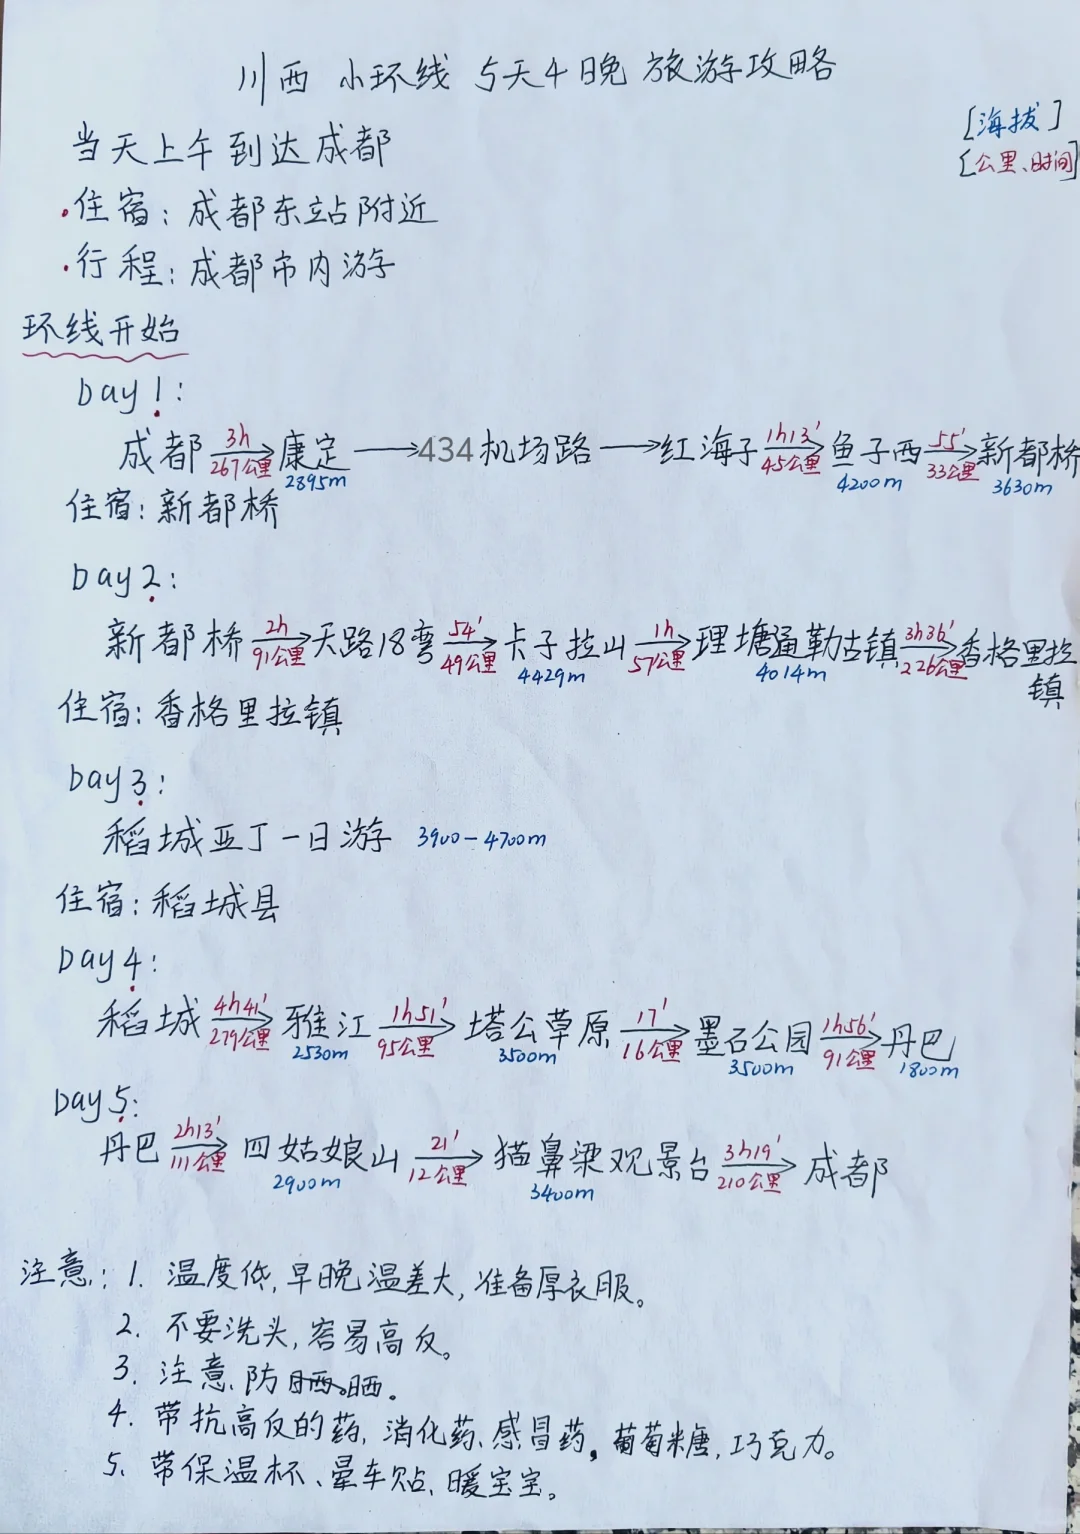 川西 小环线 5天4晚 旅游攻略
[海拔]
[公里、时间]
当天上午到达成都
·住宿：成都东站附近
·行程：成都市内游
环线开始
Day1：
成都 3h 267公里 → 康定 2895m → 434机场路 → 红海子 1h13' 45公里 → 鱼子西 4200m 55' 33公里 → 新都桥 3630m
住宿：新都桥
Day2：
新都桥 2h 91公里 → 天路18弯 54' 49公里 → 卡子拉山 4429m 1h 57公里 → 理塘通勒古镇 4014m 3h36' 226公里 → 香格里拉镇
住宿：香格里拉镇
Day3：
稻城亚丁一日游 3900-4700m
住宿：稻城县
Day4：
稻城 4h41' 279公里 → 雅江 2530m 1h51' 95公里 → 塔公草原 3500m 17' 16公里 → 墨石公园 3500m 1h56' 91公里 → 丹巴 1800m
Day5：
丹巴 2h13' 111公里 → 四姑娘山 2900m 21' 12公里 → 猫鼻梁观景台 3400m 3h19' 210公里 → 成都
注意：1. 温度低，早晚温差大，准备厚衣服。
2. 不要洗头，容易高反。
3. 注意防晒。
4. 带抗高反的药，消化药、感冒药，葡萄糖，巧克力。
5. 带保温杯、晕车贴、暖宝宝。